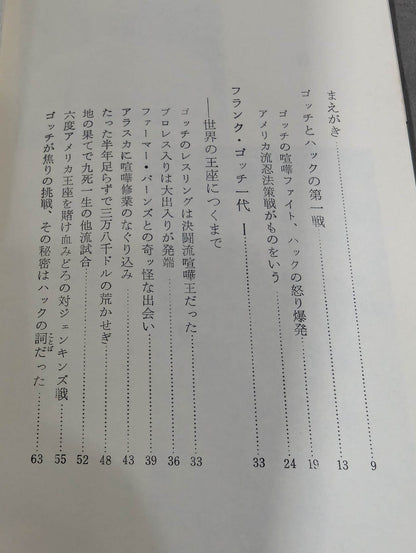 まえがき……9
ゴッチとハックの第一戦……13
ゴッチの喧嘩ファイト、ハックの怒り爆発……19
アメリカ流忍法策戦がものをいう……24
フランク・ゴッチ一代 Ⅰ……33
――世界の王座につくまで
ゴッチのレスリングは決闘流喧嘩王だった……33
プロレス入りは大出入りが発端……36
ファーマー・バーンズとの奇ッ怪な出会い……39
アラスカに喧嘩修業のなぐり込み……43
たった半年足らずで三万八千ドルの荒かせぎ……48
地の果てで九死一生の他流試合……52
六度アメリカ王座を賭け血みどろの対ジェンキンズ戦……55
ゴッチが焦りの挑戦、その秘密はハックの詞だった……63
ことば